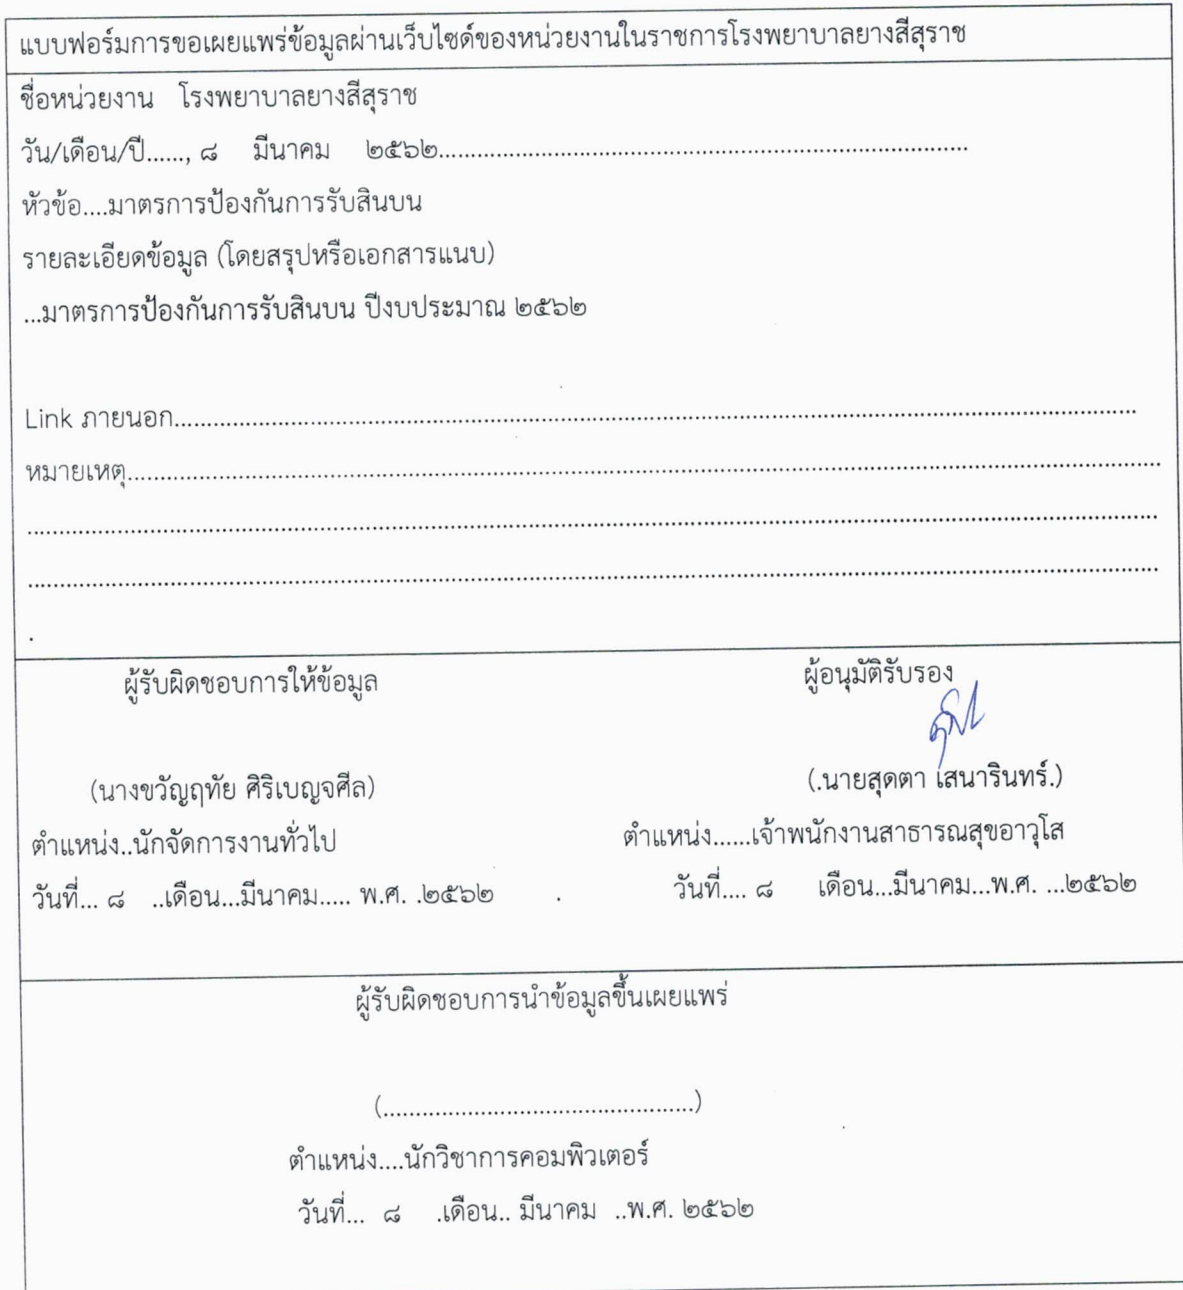 แบบฟอร์มการขอเผยแพร่ข้อมูลผ่านเว็บไซด์ของหน่วยงานในราชการโรงพยาบาลยางสีสุราช
ชื่อหน่วยงาน โรงพยาบาลยางสีสุราช
วัน/เดือน/ปี......, ๘ มีนาคม ๒๕๖๒....................................................................................
หัวข้อ....มาตรการป้องกันการรับสินบน
รายละเอียดข้อมูล (โดยสรุปหรือเอกสารแนบ)
...มาตรการป้องกันการรับสินบน ปีงบประมาณ ๒๕๖๒
Link ภายนอก....................................................................................
หมายเหตุ....................................................................................
....................................................................................
....................................................................................
.
ผู้รับผิดชอบการให้ข้อมูล ผู้อนุมัติรับรอง
(นางขวัญฤทัย ศิริเบญจศีล) (.นายสุดตา เสนารินทร์.)
ตำแหน่ง..นักจัดการงานทั่วไป ตำแหน่ง......เจ้าพนักงานสาธารณสุขอาวุโส
วันที่... ๘ ..เดือน...มีนาคม..... พ.ศ. .๒๕๖๒ . วันที่.... ๘ เดือน...มีนาคม...พ.ศ. ...๒๕๖๒
ผู้รับผิดชอบการนำข้อมูลขึ้นเผยแพร่
(................................................)
ตำแหน่ง....นักวิชาการคอมพิวเตอร์
วันที่... ๘ .เดือน.. มีนาคม ..พ.ศ. ๒๕๖๒